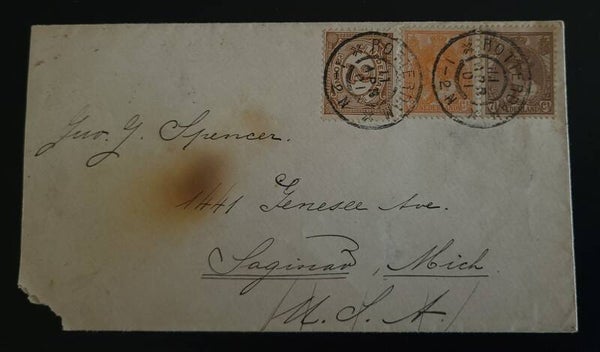 ROTTERDAM
11 APR
01
1-2 N
ROTTERDAM
11 APR
01
1-2 N
Jno. G. Spencer.
1441 Genesee Ave.
Saginaw, Mich.
U. S. A.